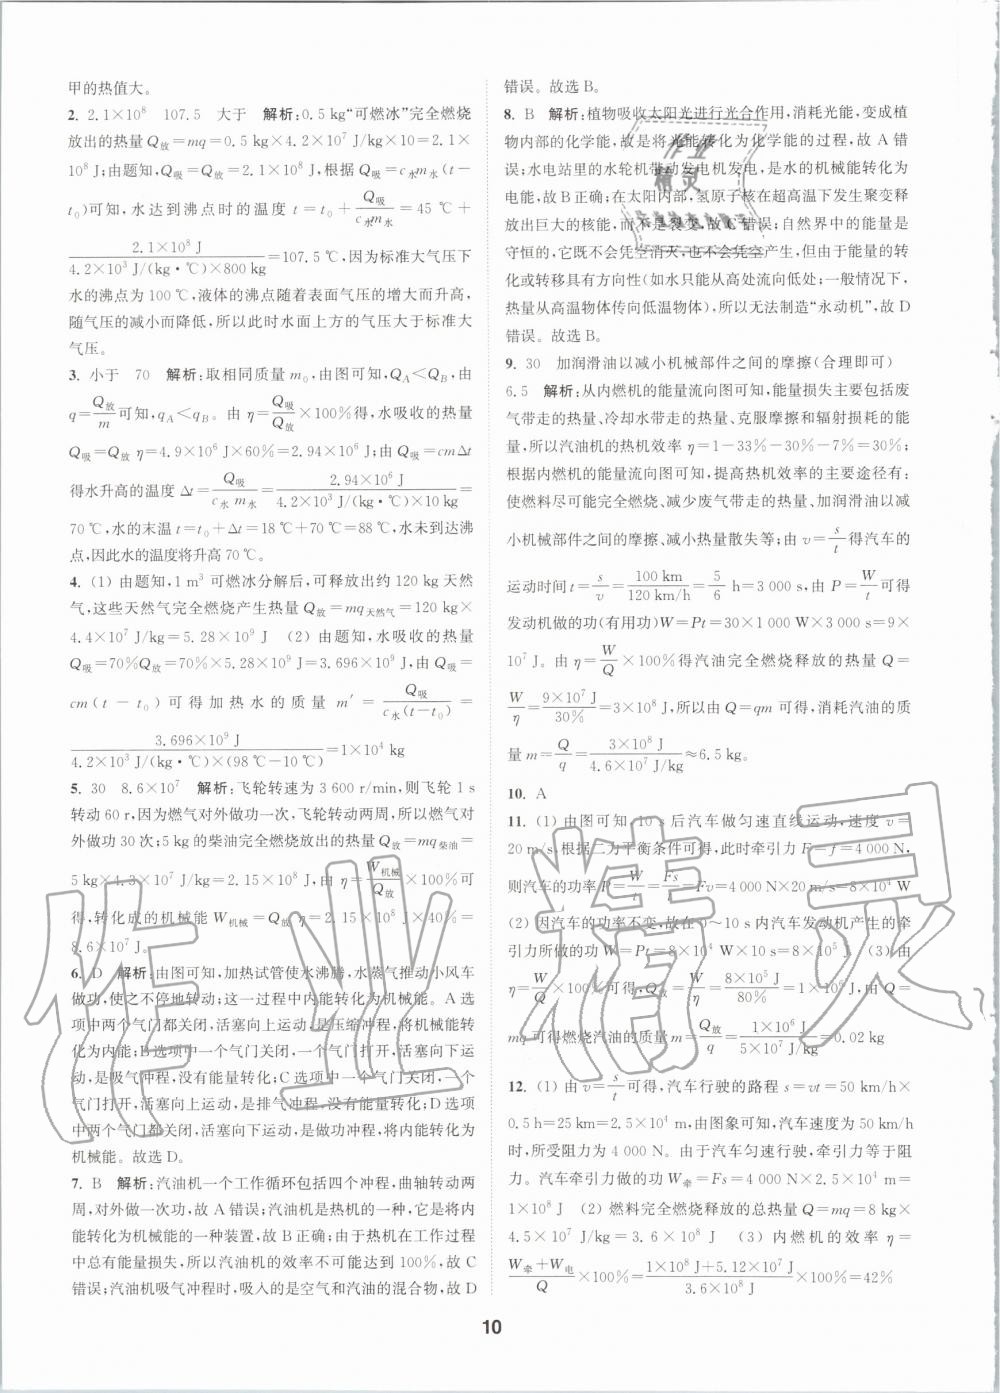 甲的热值大。
2. 2.1×10⁸　107.5　大于　解析:0.5 kg“可燃冰”完全燃烧
放出的热量 Q放=mq=0.5 kg×4.2×10⁷ J/kg×10=2.1×
10⁸ J;由题知,Q吸=Q放=2.1×10⁸ J,根据 Q吸=c水m水(t−
t₀)可知,水达到沸点时的温度 t=t₀+Q吸/(c水m水)=45 ℃+
2.1×10⁸ J/(4.2×10³ J/(kg·℃)×800 kg)=107.5 ℃,因为标准大气压下
水的沸点为 100 ℃,液体的沸点随着表面气压的增大而升高,
随气压的减小而降低,所以此时水面上方的气压大于标准大
气压。
3. 小于　70　解析:取相同质量 m₀,由图可知,QA<QB,由
q=Q放/m可知,qA<qB。由 η=Q吸/Q放×100%得,水吸收的热量
Q吸=Q放 η=4.9×10⁶ J×60%=2.94×10⁶ J;由 Q吸=cmΔt
得水升高的温度 Δt=Q吸/(c水 m水)=2.94×10⁶ J/(4.2×10³ J/(kg·℃)×10 kg)=
70 ℃,水的末温 t=t₀+Δt=18 ℃+70 ℃=88 ℃,水未到达沸
点,因此水的温度将升高 70 ℃。
4. (1) 由题知,1 m³ 可燃冰分解后,可释放出约 120 kg 天然
气,这些天然气完全燃烧产生热量 Q放=mq天然气=120 kg×
4.4×10⁷ J/kg=5.28×10⁹ J　(2) 由题知,水吸收的热量
Q吸=70%Q放=70%×5.28×10⁹ J=3.696×10⁹ J,由 Q吸=
cm(t−t₀)可得加热水的质量 m′=Q吸/(c水(t−t₀))=
3.696×10⁹ J/(4.2×10³ J/(kg·℃)×(98 ℃−10 ℃))=1×10⁴ kg
5. 30　8.6×10⁷　解析:飞轮转速为 3 600 r/min,则飞轮 1 s
转动 60 r,因为燃气对外做功一次,飞轮转动两周,所以燃气对
外做功 30 次;5 kg 的柴油完全燃烧放出的热量 Q放=mq柴油=
5 kg×4.3×10⁷ J/kg=2.15×10⁸ J,由 η=W机械/Q放×100%可
得,转化成的机械能 W机械=Q放 η=2.15×10⁸ J×40%=
8.6×10⁷ J。
6. D　解析:由图可知,加热试管使水沸腾,水蒸气推动小风车
做功,使之不停地转动;这一过程中内能转化为机械能。A 选
项中两个气门都关闭,活塞向上运动,是压缩冲程,将机械能转
化为内能;B 选项中一个气门关闭,一个气门打开,活塞向下运
动,是吸气冲程,没有能量转化;C 选项中一个气门关闭,一个
气门打开,活塞向上运动,是排气冲程,没有能量转化;D 选项
中两个气门都关闭,活塞向下运动,是做功冲程,将内能转化为
机械能。故选 D。
7. B　解析:汽油机一个工作循环包括四个冲程,曲轴转动两
周,对外做一次功,故 A 错误;汽油机是热机的一种,它是将内
能转化为机械能的一种装置,故 B 正确;由于热机在工作过程
中总有能量损失,所以汽油机的效率不可能达到 100%,故 C
错误;汽油机吸气冲程时,吸入的是空气和汽油的混合物,故 D
错误。故选 B。
8. B　解析:植物吸收太阳光进行光合作用,消耗光能,变成植
物内部的化学能,故是将光能转化为化学能的过程,故 A 错
误;水电站里的水轮机带动发电机发电,是水的机械能转化为
电能,故 B 正确;在太阳内部,氢原子核在超高温下发生聚变释
放出巨大的核能,而不是裂变,故 C 错误;自然界中的能量是
守恒的,它既不会凭空消灭,也不会凭空产生,但由于能量的转
化或转移具有方向性(如水只能从高处流向低处;一般情况下,
热量从高温物体传向低温物体),所以无法制造“永动机”,故 D
错误。故选 B。
9. 30　加润滑油以减小机械部件之间的摩擦(合理即可)
6.5　解析:从内燃机的能量流向图可知,能量损失主要包括废
气带走的热量、冷却水带走的热量、克服摩擦和辐射损耗的能
量,所以汽油机的热机效率 η=1−33%−30%−7%=30%;
根据内燃机的能量流向图可知,提高热机效率的主要途径有:
使燃料尽可能完全燃烧、减少废气带走的热量、加润滑油以减
小机械部件之间的摩擦、减少热量散失等;由 v=s/t得汽车的
运动时间t=s/v=100 km/(120 km/h)=5/6 h=3 000 s,由 P=W/t可得
发动机做的功(有用功)W=Pt=30×1 000 W×3 000 s=9×
10⁷ J。由 η=W/Q×100%得汽油完全燃烧释放的热量 Q=
W/η=9×10⁷ J/30%=3×10⁸ J,所以由 Q=qm 可得,消耗汽油的质
量 m=Q/q=3×10⁸ J/(4.6×10⁷ J/kg)≈6.5 kg。
10. A
11. (1) 由图可知,10 s 后汽车做匀速直线运动,速度 v=
20 m/s,根据二力平衡条件可得,此时牵引力 F=f=4 000 N,
则汽车的功率 P=W/t=Fs/t=Fv=4 000 N×20 m/s=8×10⁴ W
(2) 因汽车的功率不变,故在 0~10 s 内汽车发动机产生的牵
引力所做的功 W=Pt=8×10⁴ W×10 s=8×10⁵ J　(3) 由
η=W/Q×100%可得,Q放=W/η=8×10⁵ J/80%=1×10⁶ J,由 Q=
mq 可得燃烧汽油的质量 m=Q放/q=1×10⁶ J/(5×10⁷ J/kg)=0.02 kg
12. (1) 由 v=s/t可得,汽车行驶的路程 s=vt=50 km/h×
0.5 h=25 km=2.5×10⁴ m,由图象可知,汽车速度为 50 km/h
时,所受阻力为 4 000 N。由于汽车匀速行驶,牵引力等于阻
力。汽车牵引力做的功 W牵=Fs=4 000 N×2.5×10⁴ m=
1×10⁸ J　(2) 燃料完全燃烧释放的总热量 Q=mq=8 kg×
4.5×10⁷ J/kg=3.6×10⁸ J　(3) 内燃机的效率 η=
(W牵+W电)/Q×100%=(1×10⁸ J+5.12×10⁷ J)/(3.6×10⁸ J)×100%=42%
10
作业精灵
作业
精灵